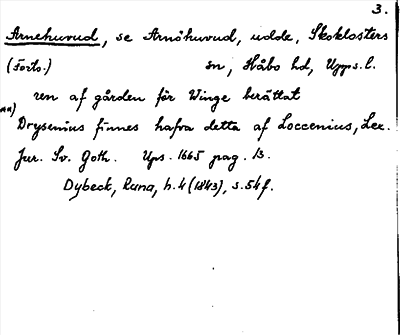 3.
Arnehuvud, se Arnöhuvud, udde, Skoklosters
(Forts.) sn, Håbo hd, Upps.l.
ren af gården för Winge berättat
**) Drysenius finnes hafva detta af Loccenius, Lex.
Jur. Sv. Goth. Ups. 1665 pag. 13.
Dybeck, Runa, h.4 (1843), s.54f.